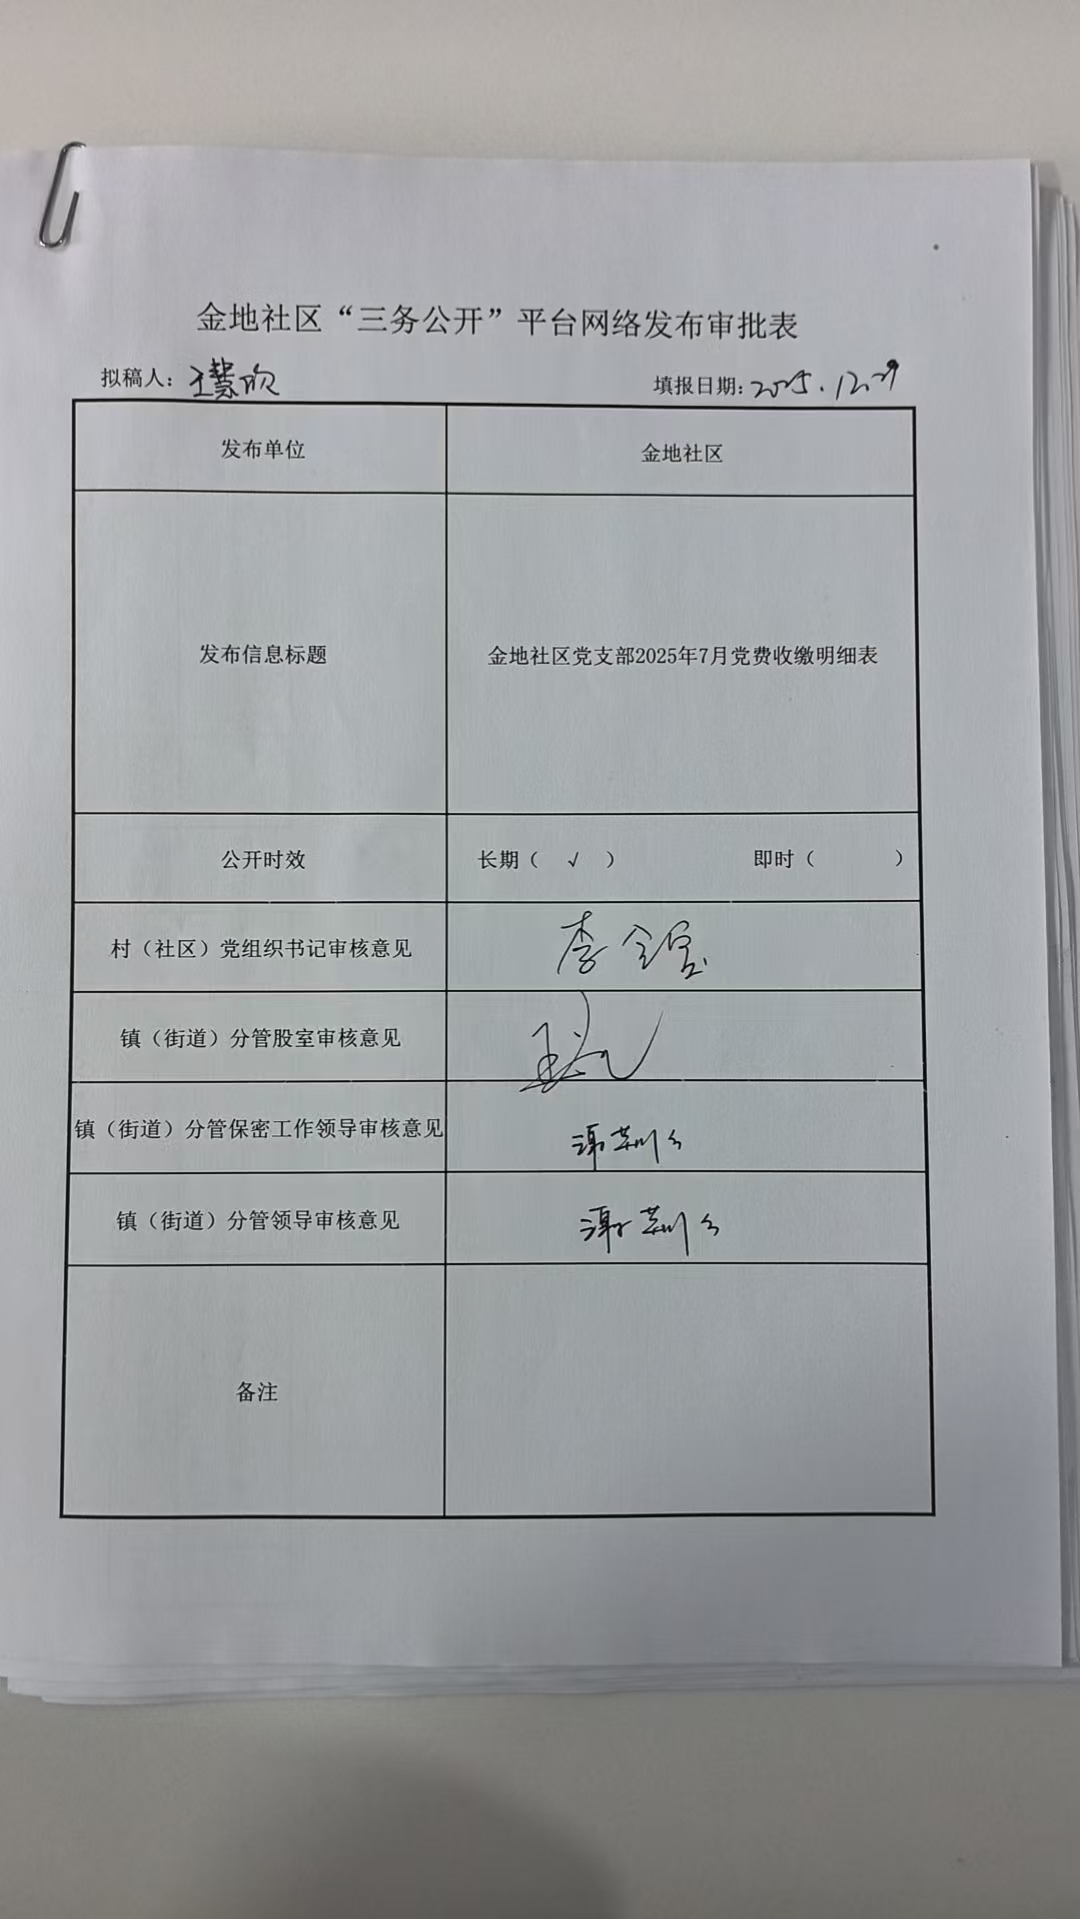 金地社区“三务公开”平台网络发布审批表
拟稿人：王慧欣 填报日期：2025.12.29
发布单位 金地社区
发布信息标题 金地社区党支部2025年7月党费收缴明细表
公开时效 长期（ √ ） 即时（ ）
村（社区）党组织书记审核意见 李金宝
镇（街道）分管股室审核意见
镇（街道）分管保密工作领导审核意见
镇（街道）分管领导审核意见
备注